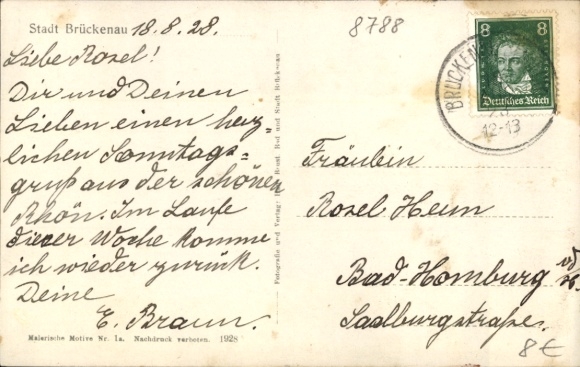 Stadt Brückenau 18.8.28.
Liebe Rosel!
Dir und Deinen
Lieben einen herz„
lichen Sonntags=
gruß aus der schönen
Rhön. Im Laufe
dieser Woche komme
ich wieder zurück.
Deine
E. Braun.
Malerische Motive Nr. 1a. Nachdruck verboten. 1928
Fotografie und Verlag: Bad und Stadt Brückenau
8788
8 8
Deutsches Reich
BRÜCKEN
12-13
Fräulein
Rosel Heun
Bad-Homburg v.d.
H.
Saalburgstraße.
8€